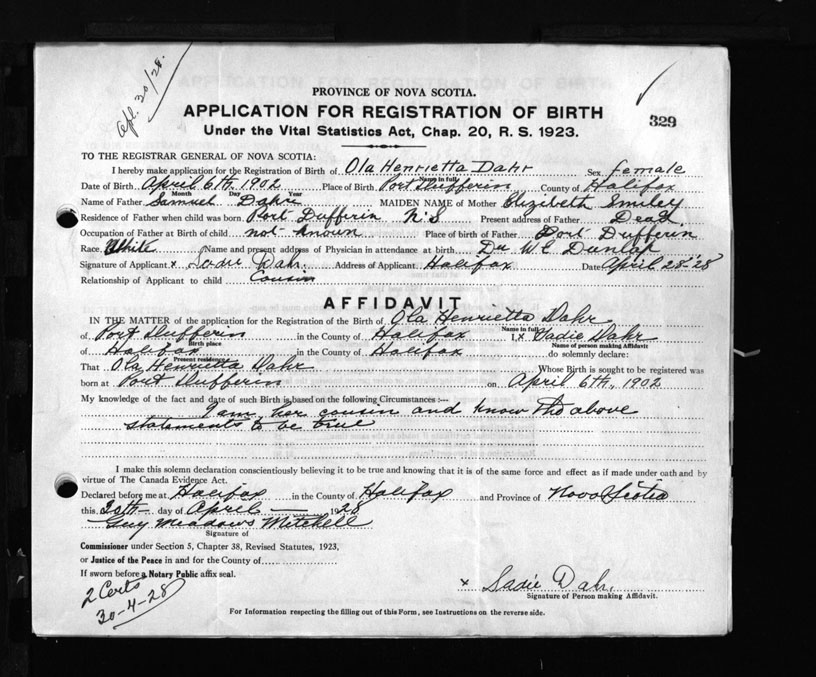 Apl. 30/28.
PROVINCE OF NOVA SCOTIA.
APPLICATION FOR REGISTRATION OF BIRTH
329
Under the Vital Statistics Act, Chap. 20, R. S. 1923.
TO THE REGISTRAR GENERAL OF NOVA SCOTIA:
I hereby make application for the Registration of Birth of Ola Henrietta Dahr Sex female
Name in full
Date of Birth April 6th, 1902 Place of Birth Port Dufferin County of Halifax
Month Day Year
Name of Father Samuel Dahr MAIDEN NAME of Mother Elizabeth Smiley
Residence of Father when child was born Port Dufferin N.S Present address of Father Dead
Occupation of Father at Birth of child not known Place of birth of Father Port Dufferin
Race White Name and present address of Physician in attendance at birth Dr W E Dunlap
Signature of Applicant x Sadie Dahr. Address of Applicant Halifax Date April 28-28
Relationship of Applicant to child Cousin
AFFIDAVIT
IN THE MATTER of the application for the Registration of the Birth of Ola Henrietta Dahr
Name in full
of Port Dufferin in the County of Halifax I, x Sadie Dahr
Birth place Name of person making Affidavit
of Halifax in the County of Halifax do solemnly declare:
Present residence
That Ola Henrietta Dahr Whose Birth is sought to be registered was
born at Port Dufferin on April 6th, 1902
My knowledge of the fact and date of such Birth is based on the following Circumstances :—
I am her cousin and know the above
statements to be true
I make this solemn declaration conscientiously believing it to be true and knowing that it is of the same force and effect as if made under oath and by
virtue of The Canada Evidence Act.
Declared before me at Halifax in the County of Halifax and Province of Nova Scotia
this day of April 1928
Guy Meadows Mitchell
Signature of
Commissioner under Section 5, Chapter 38, Revised Statutes, 1923,
or Justice of the Peace in and for the County of
If sworn before a Notary Public affix seal.
2 Certs
30-4-28
x Sadie Dahr.
Signature of Person making Affidavit.
For Information respecting the filling out of this Form, see Instructions on the reverse side.